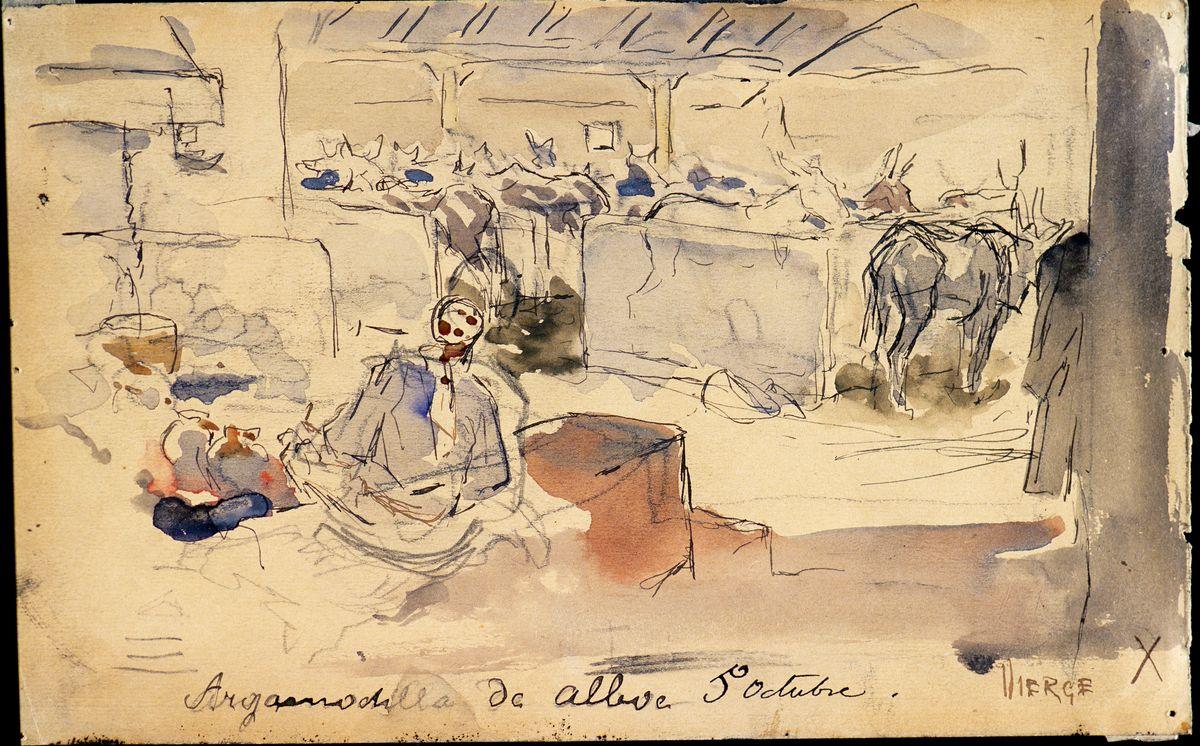 Argamodilla de alboa 5º octubre .
VIERGE
X